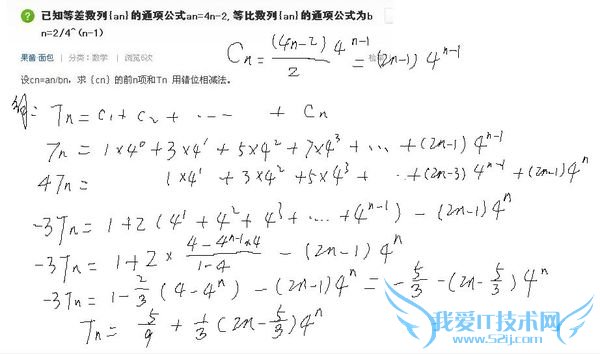 已知等差数列{an}的通项公式an=4n-2,等比数列{an}的通项公式为b
n=2/4^(n-1)
Cn = (4n-2) 4^(n-1) / 2 = (2n-1) 4^(n-1)
果酱 面包 | 分类：数学 | 浏览6次
设cn=an/bn，求｛cn｝的前n项和Tn 用错位相减法。
解: Tn = C1 + C2 + ---- + Cn
Tn = 1×4^0 + 3×4^1 + 5×4^2 + 7×4^3 + ... + (2n-1) 4^(n-1)
4Tn = 1×4^1 + 3×4^2 + 5×4^3 + ... + (2n-3) 4^(n-1) + (2n-1) 4^n
-3Tn = 1 + 2 (4^1 + 4^2 + 4^3 + ... + 4^(n-1)) - (2n-1) 4^n
-3Tn = 1 + 2 × (4 - 4^(n-1)×4) / (1-4) - (2n-1) 4^n
-3Tn = 1 - 2/3 (4 - 4^n) - (2n-1) 4^n = - 5/3 - (2n - 5/3) 4^n
Tn = 5/9 + 1/3 (2n - 5/3) 4^n
我爱IT技术网
www.52ij.com